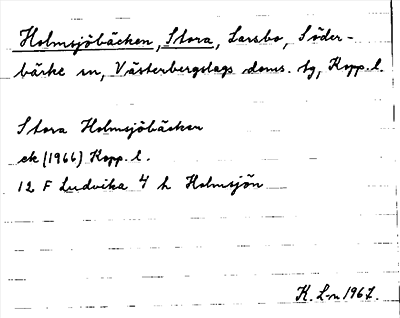 Holmsjöbäcken, Stora, Larsbo, Söder-
bärke sn, Västerbergslags doms. tg, Kopp. l.
Stora Holmsjöbäcken
ek (1966) Kopp. l.
12 F Ludvika 4 h Holmsjön
K. L-n 1967.